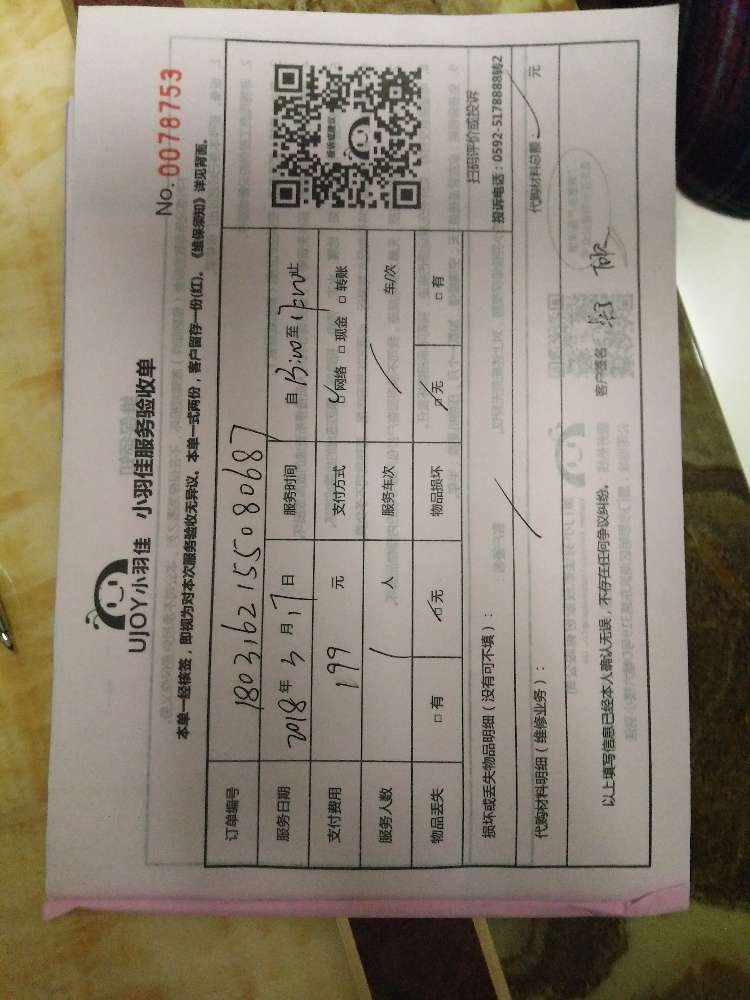 UJOY小羽佳 小羽佳服务验收单
No. 0078753
本单一经核签，即视为对本次服务验收无异议。本单一式两份，客户留存一份(红)。《维保须知》详见背面。
订单编号 1803162155080687
服务日期 2018年3月17日 服务时间 自13:00至17:00止
支付费用 199 元 支付方式 网络 现金 转账
服务人数 1 人 服务车次 / 车/次
物品丢失 有 无 物品损坏 有 无
投诉或建议
扫码评价或投诉
投诉电话：0592-5178888转2
损坏或丢失物品明细（没有可不填）：
代购材料明细（维修业务）： 代购材料总额： 元
以上填写信息已经本人确认无误，不存在任何争议纠纷。 客户签名：